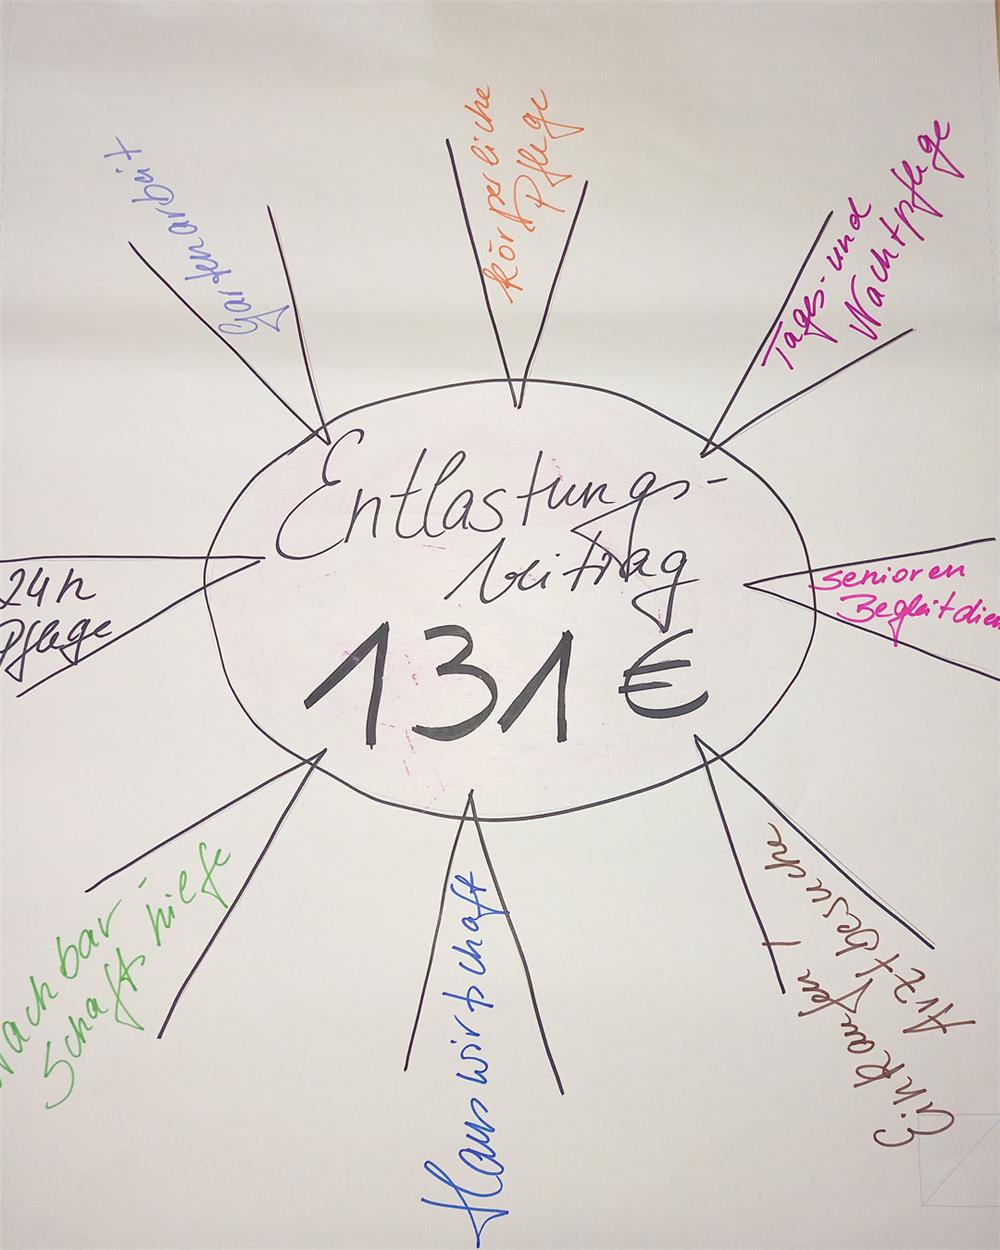 Entlastungs-
beitrag
131 €
körperliche
Pflege
Tages- und
Nachtpflege
Senioren
Begleitdien
Einkaufen /
Arztbesuche
Hauswirtschaft
Nachbar-
schaftshielfe
24h
Pflege
Gartenarbeit